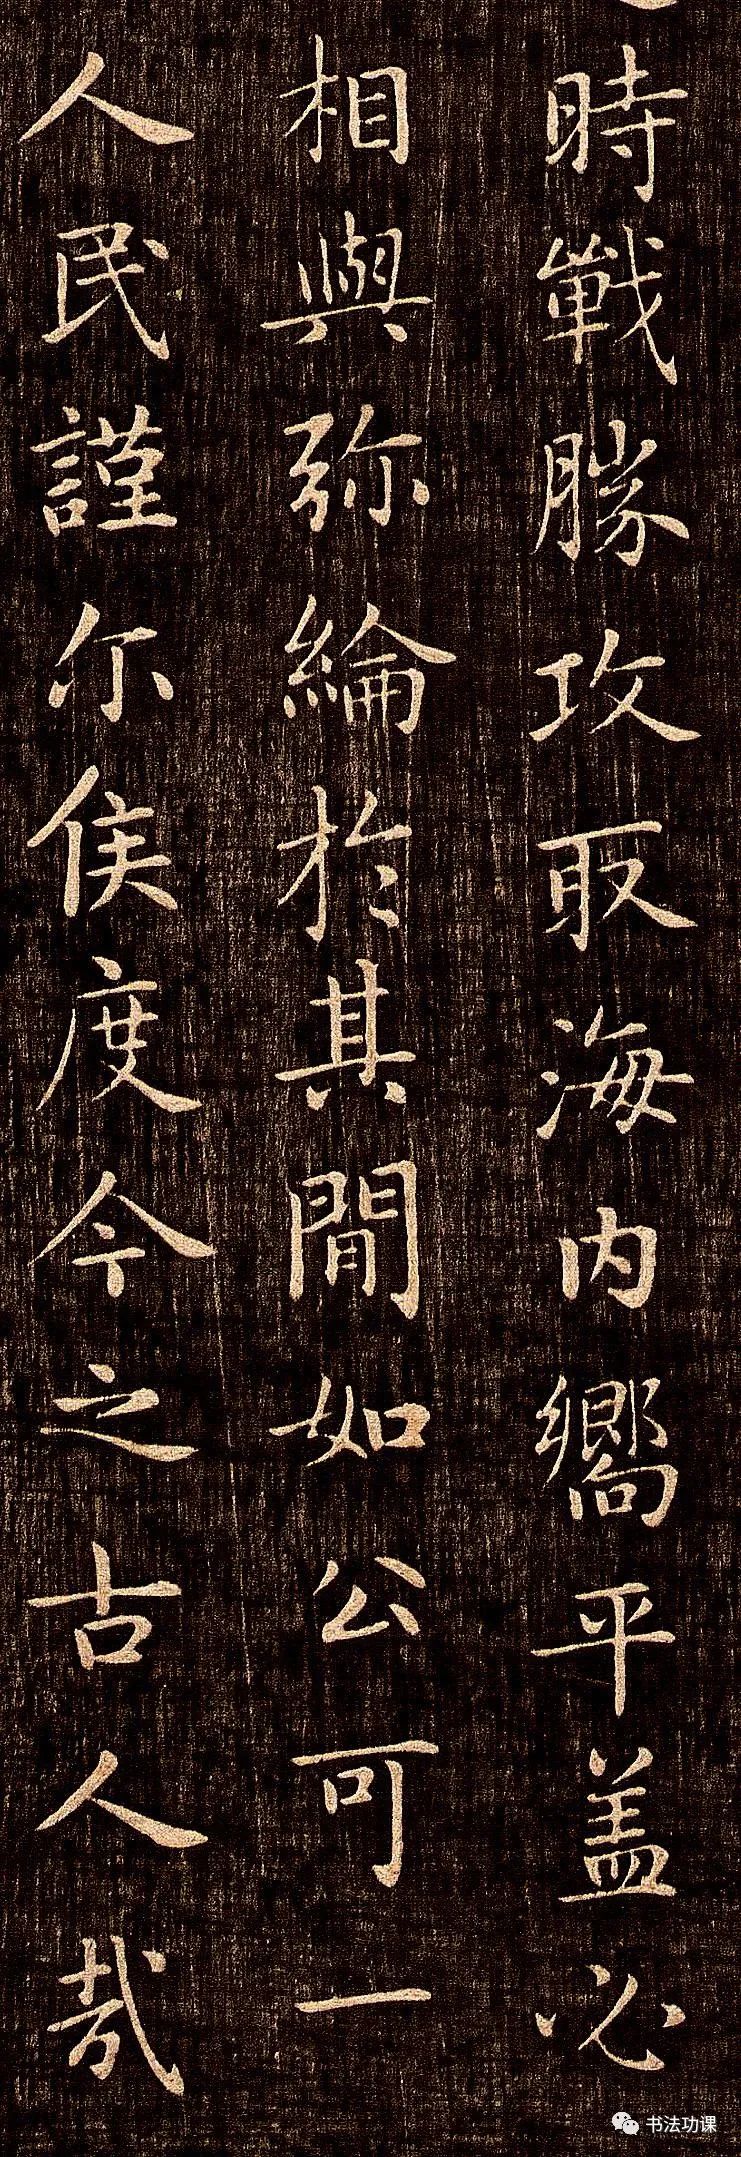 時戰勝攻取海内嚮平盖必
相與弥綸於其間如公可一
人民謹尔侯度今之古人哉
书法功课